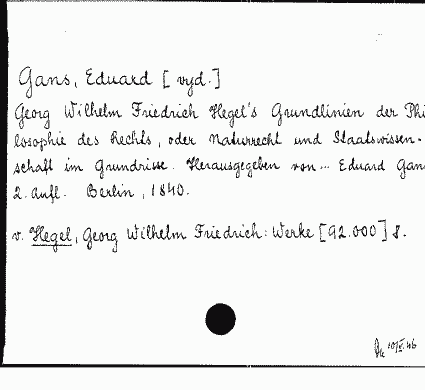 Gans, Eduard [vyd.]
Georg Wilhelm Friedrich Hegel's Grundlinien der Phi
losophie des Rechts, oder Naturrecht und Staatswissen-
schaft im Grundrisse. Herausgegeben von... Eduard Gans
2. Aufl. Berlin, 1840.
v. Hegel, Georg Wilhelm Friedrich: Werke [92.000] 8.